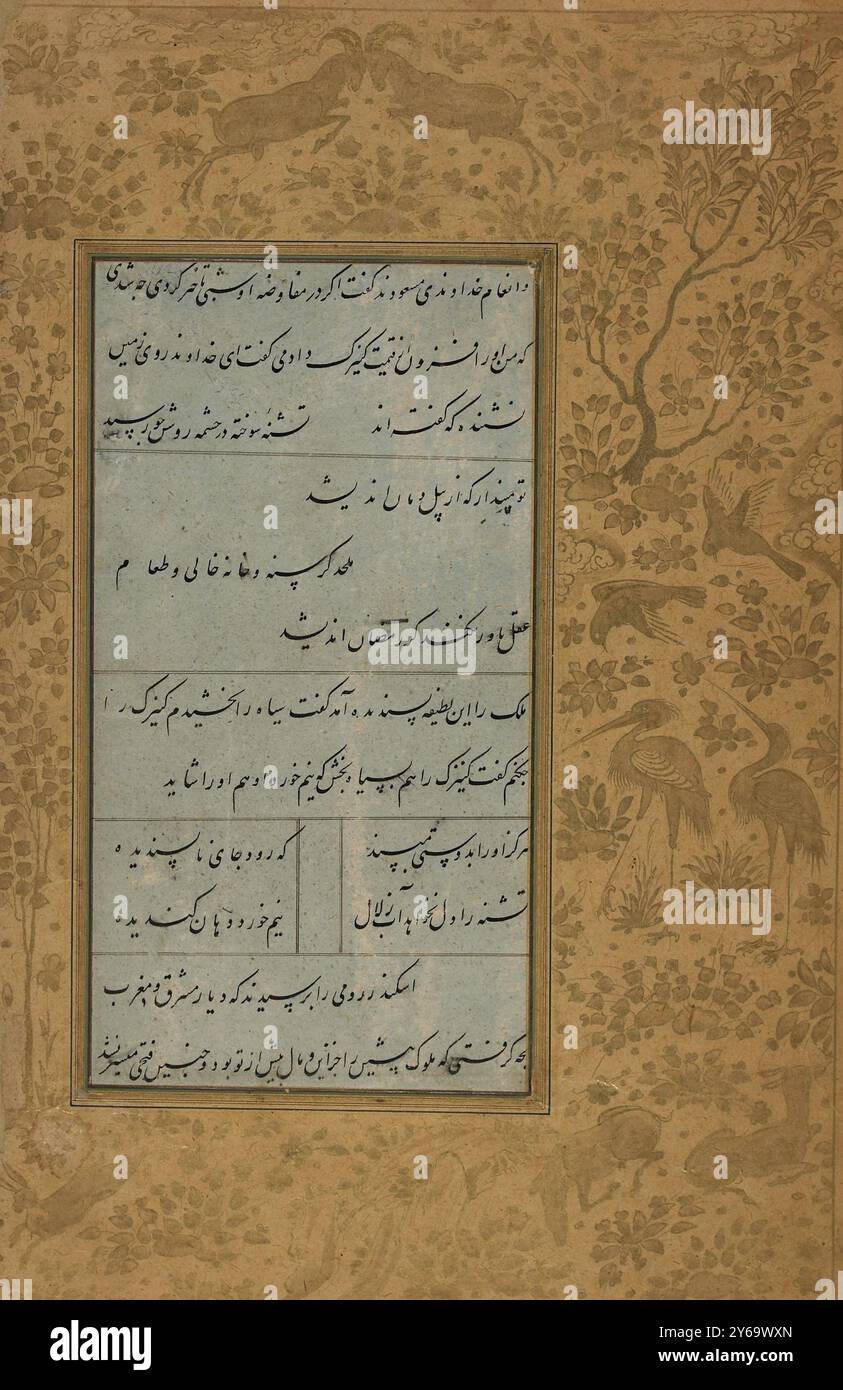 وانعام خداوندی مسعودند گفت اگر در مفاوضه او شبی تاخیر کردی چه شدی
که من او را افزون از قیمت کنیزک دادمی گفت ای خداوند روی زمین
نشنیده که گفته اند تشنه سوخته در چشمه روشن چو رسید
تو مپندار که از پیل دمان اندیشد
ملحد گرسنه و خانه خالی و طعام
عقل باور نکند کز رمضان اندیشد
ملک را این لطیفه پسندیده آمد گفت سیاه را بخشیدم کنیزک را
چکنم گفت کنیزک را هم بسیاه بخش که نیم خورده او هم او را شاید
هرگز او را بدوستی مپسند که رود جای ناپسندیده
تشنه را دل نخواهد آب زلال نیم خورد دهان گندیده
اسکندر رومی را پرسیدند که دیار مشرق و مغرب
بچه گرفتی که ملوک پیشین را خزاین و مال بیش از تو بود و چنین فتحی میسر نشد
alamy
Image ID: 2Y69WXN
www.alamy.com